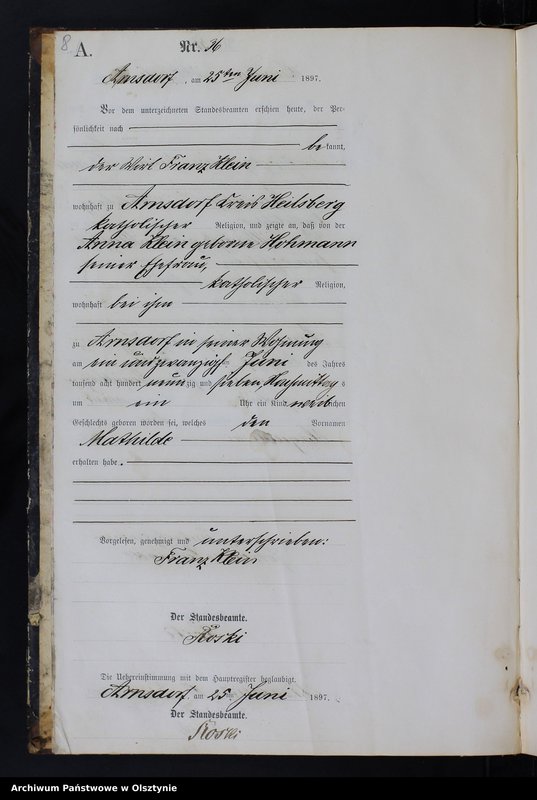 8
A.
Nr. 36
Arnsdorf, am 25ten Juni 1897.
Vor dem unterzeichneten Standesbeamten erschien heute, der Per-
sönlichkeit nach
bekannt,
der Wirt Franz Klein
wohnhaft zu Arnsdorf Kreis Heilsberg
katholischer Religion, und zeigte an, daß von der
Anna Klein geborne Hohmann
seiner Ehefrau,
katholischer Religion,
wohnhaft bei ihm
zu Arnsdorf in seiner Wohnung
am ein und zwanzigsten Juni des Jahres
tausend acht hundert neunzig und sieben Nachmittags
um ein Uhr ein Kind weiblichen
Geschlechts geboren worden sei, welches den Vornamen
Mathilde
erhalten habe.
Vorgelesen, genehmigt und unterschrieben:
Franz Klein
Der Standesbeamte.
Roski
Die Uebereinstimmung mit dem Hauptregister beglaubigt.
Arnsdorf, am 25 Juni 1897.
Der Standesbeamte.
Roski
Archiwum Państwowe w Olsztynie